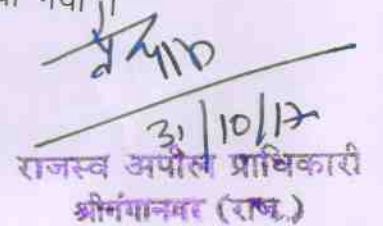 गया ।
31/10/17
राजस्व अपील प्राधिकारी
श्रीगंगानगर (राज.)